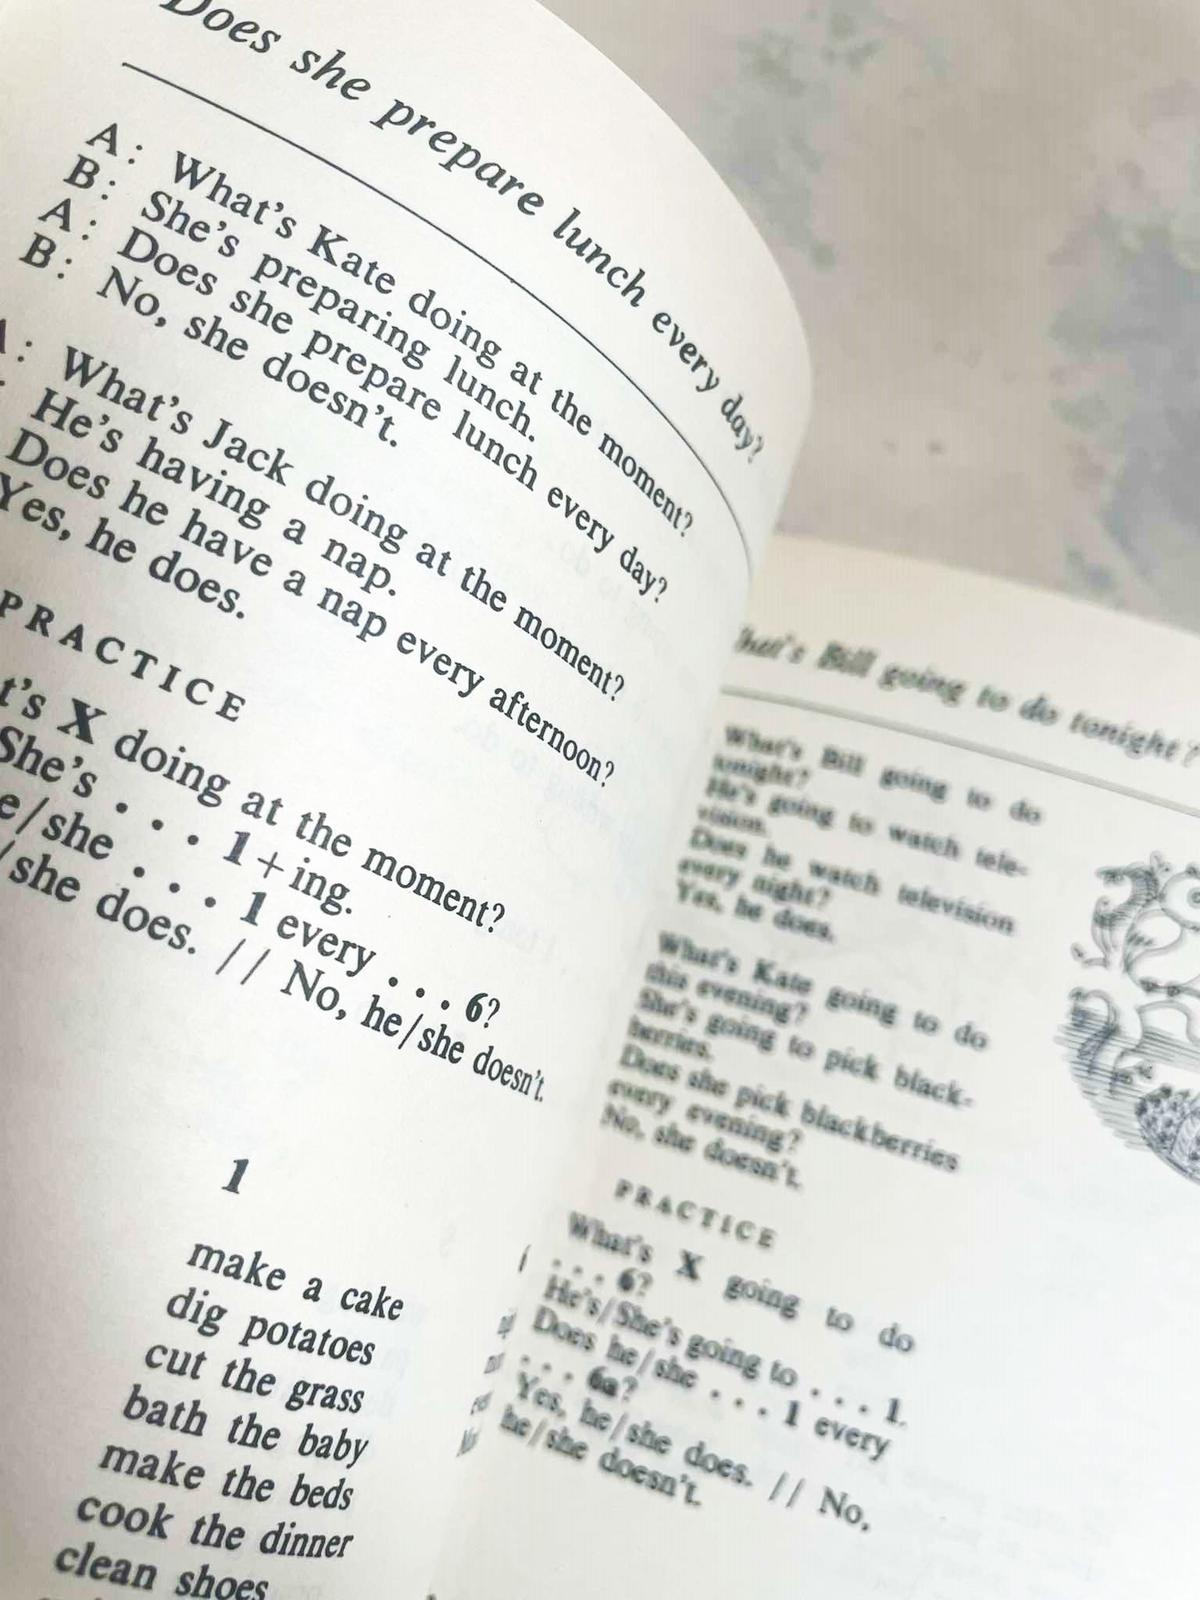 Does she prepare lunch every day?
A: What's Kate doing at the moment?
B: She's preparing lunch.
A: Does she prepare lunch every day?
B: No, she doesn't.
A: What's Jack doing at the moment?
He's having a nap.
Does he have a nap every afternoon?
Yes, he does.
PRACTICE
t's X doing at the moment?
She's . . . 1+ing.
e/she . . . 1 every . . . 6?
/she does. // No, he/she doesn't.
1
make a cake
dig potatoes
cut the grass
bath the baby
make the beds
cook the dinner
clean shoes
hat's Bill going to do tonight?
What's Bill going to do
tonight?
He's going to watch tele-
vision.
Does he watch television
every night?
Yes, he does.
What's Kate going to do
this evening?
She's going to pick black-
berries.
Does she pick blackberries
every evening?
No, she doesn't.
PRACTICE
What's X going to do
. . . 6?
He's/She's going to . . . 1.
Does he/she . . . 1 every
. . . 6a?
Yes, he/she does. // No,
he/she doesn't.